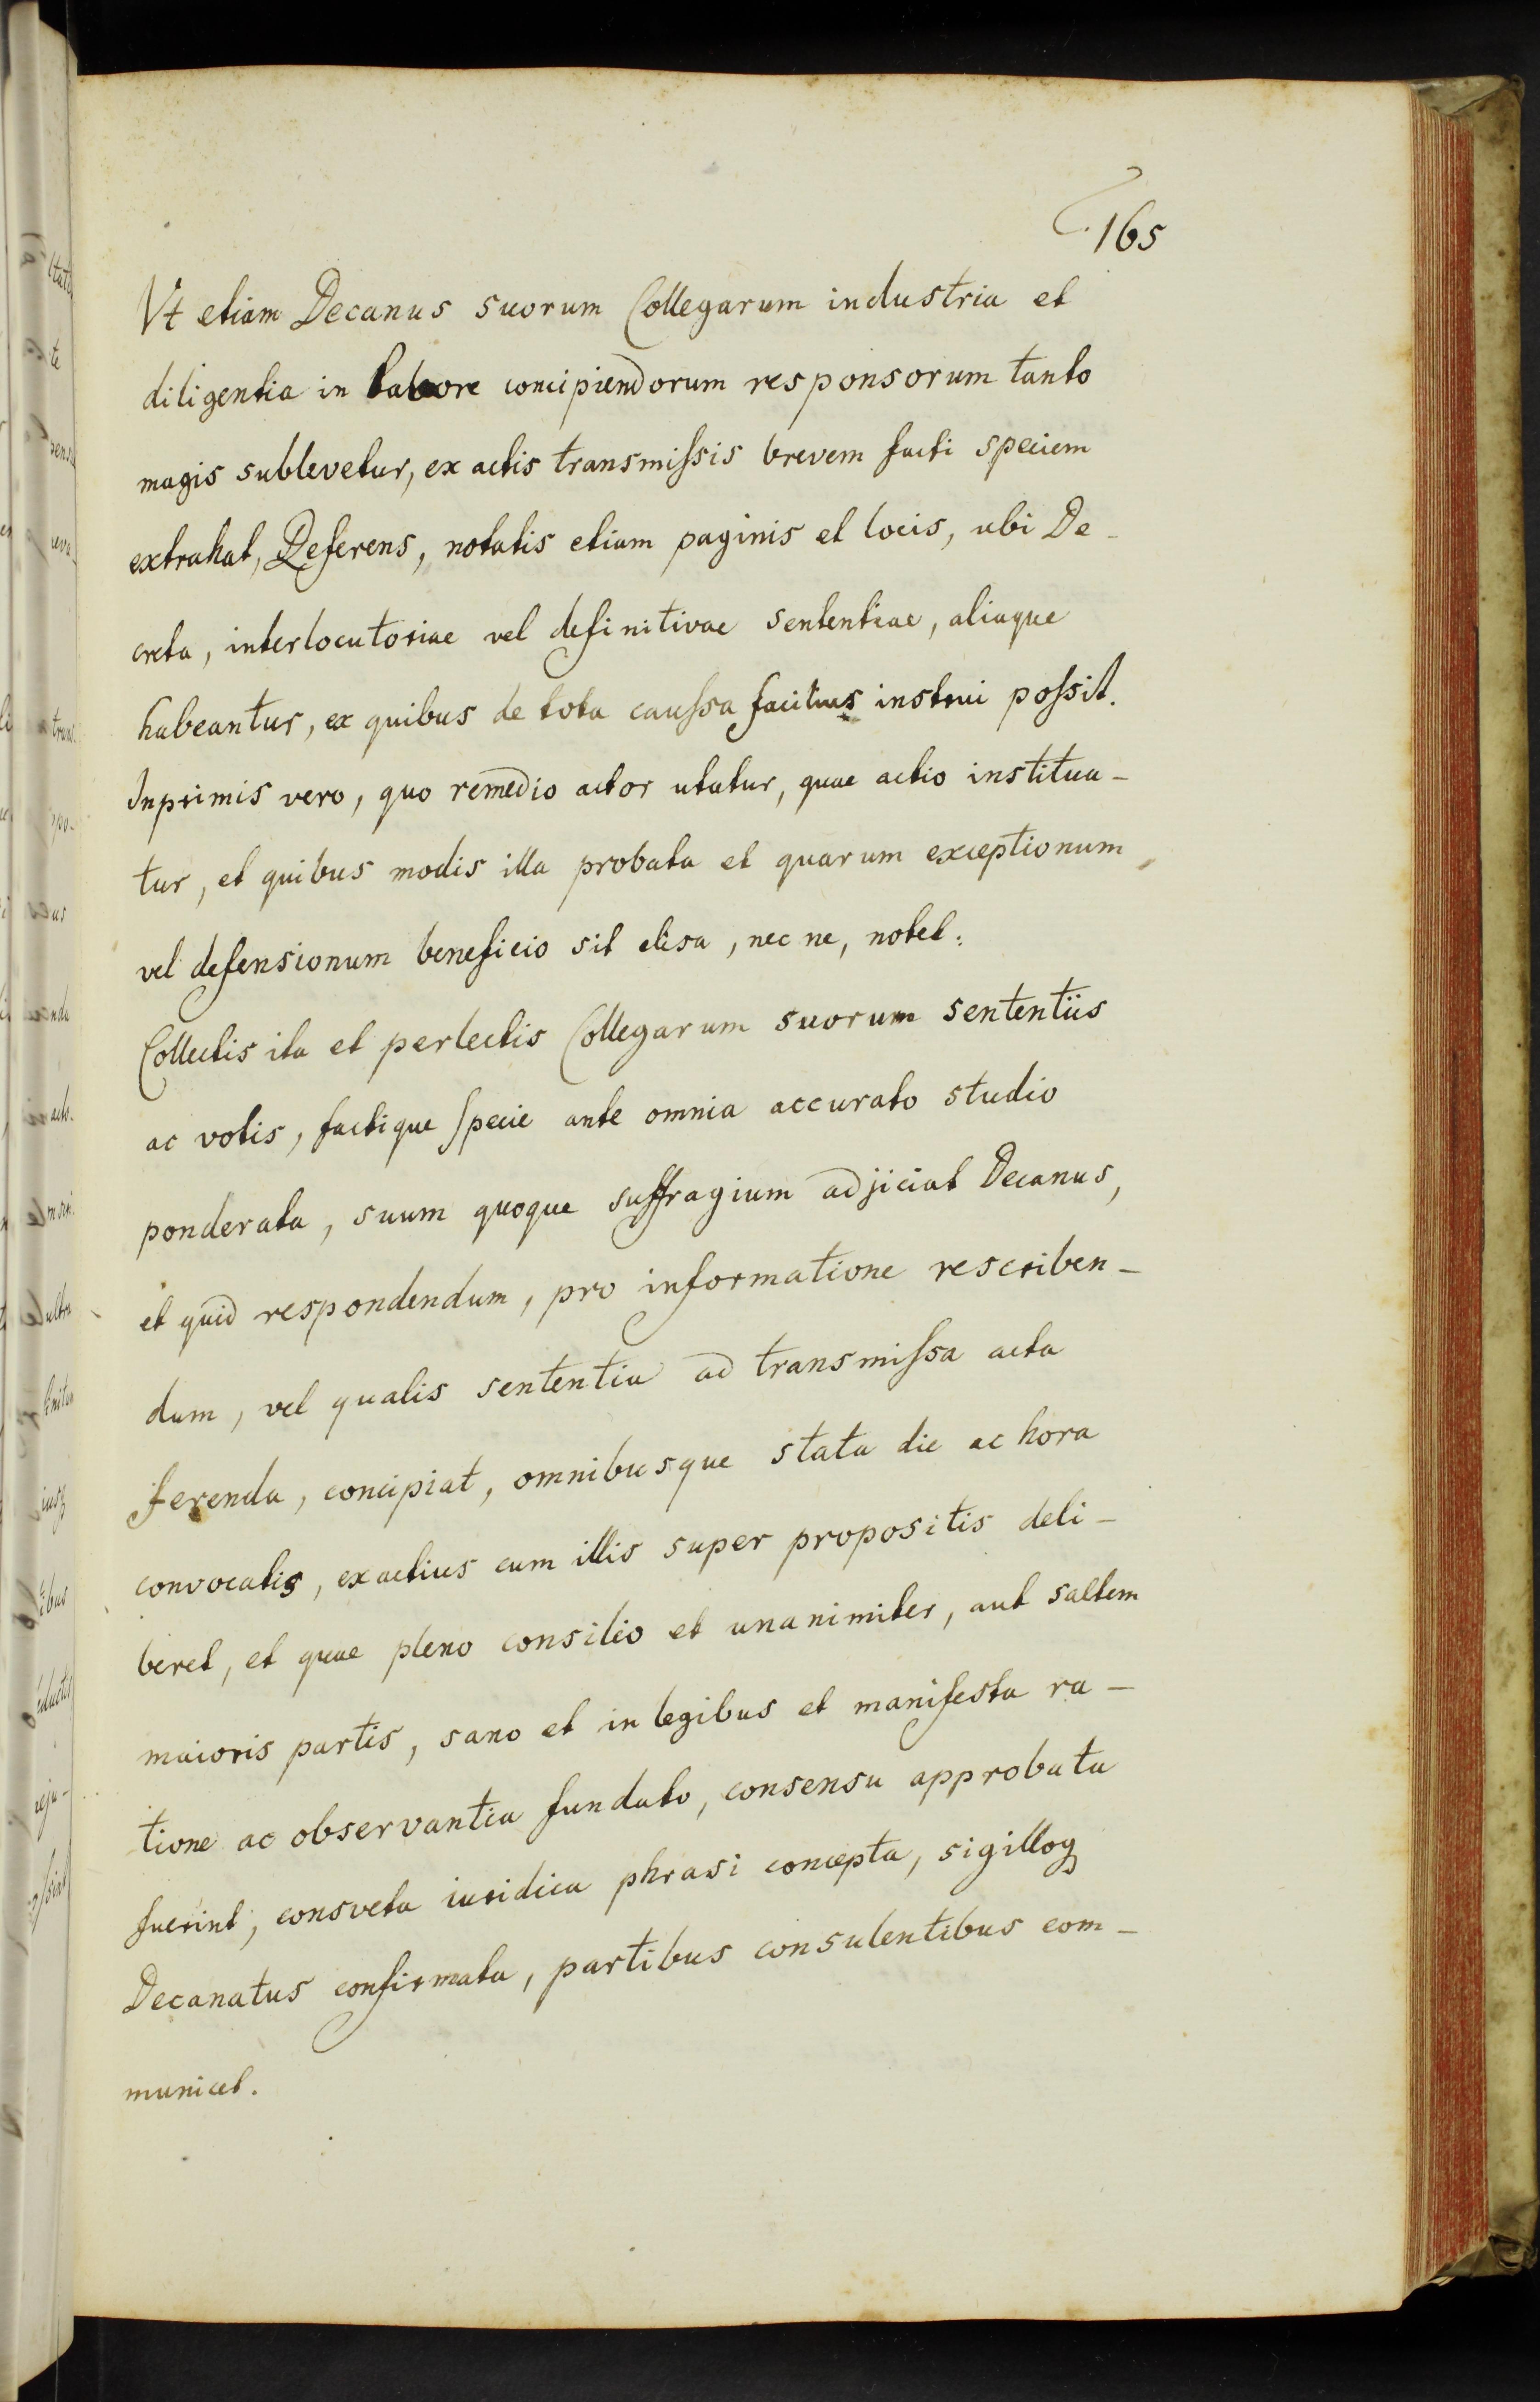 165
Vt etiam Decanus suorum Collegarum industria et
diligentia in labore concipiendorum responsorum tanto
magis sublevetur, ex actis transmiſsis brevem facti speciem
extrahat, Referens, notatis etiam paginis et locis, ubi De-
creta, interlocutoriae vel definitivae sententiae, aliaque
habeantur, ex quibus de tota cauſsa facilius instrui poſsit.
Inprimis vero, quo remedio actor utatur, quae actio institua-
tur, et quibus modis illa probata et quarum exceptionum,
vel defensionum beneficio sit elisa, nec ne, notet.
Collectis ita et perlectis Collegarum suorum sententiis
ac votis, factique specie ante omnia accurato studio
ponderata, suum quoque suffragium adjiciat Decanus,
et quid respondendum, pro informatione rescriben-
dum, vel qualis sententia ad transmiſsa acta
ferenda, concipiat, omnibusque stata die ac hora
convocatis, exactius cum illis super propositis deli-
beret, et quae pleno consilio et unanimiter, aut saltem
maioris partis, sano et in legibus et manifesta ra-
tione ac observantia fundato, consensu approbata
fuerint, consveta iuridica phrasi concepta, sigilloq
Decanatus confirmata, partibus consulentibus com-
municet.